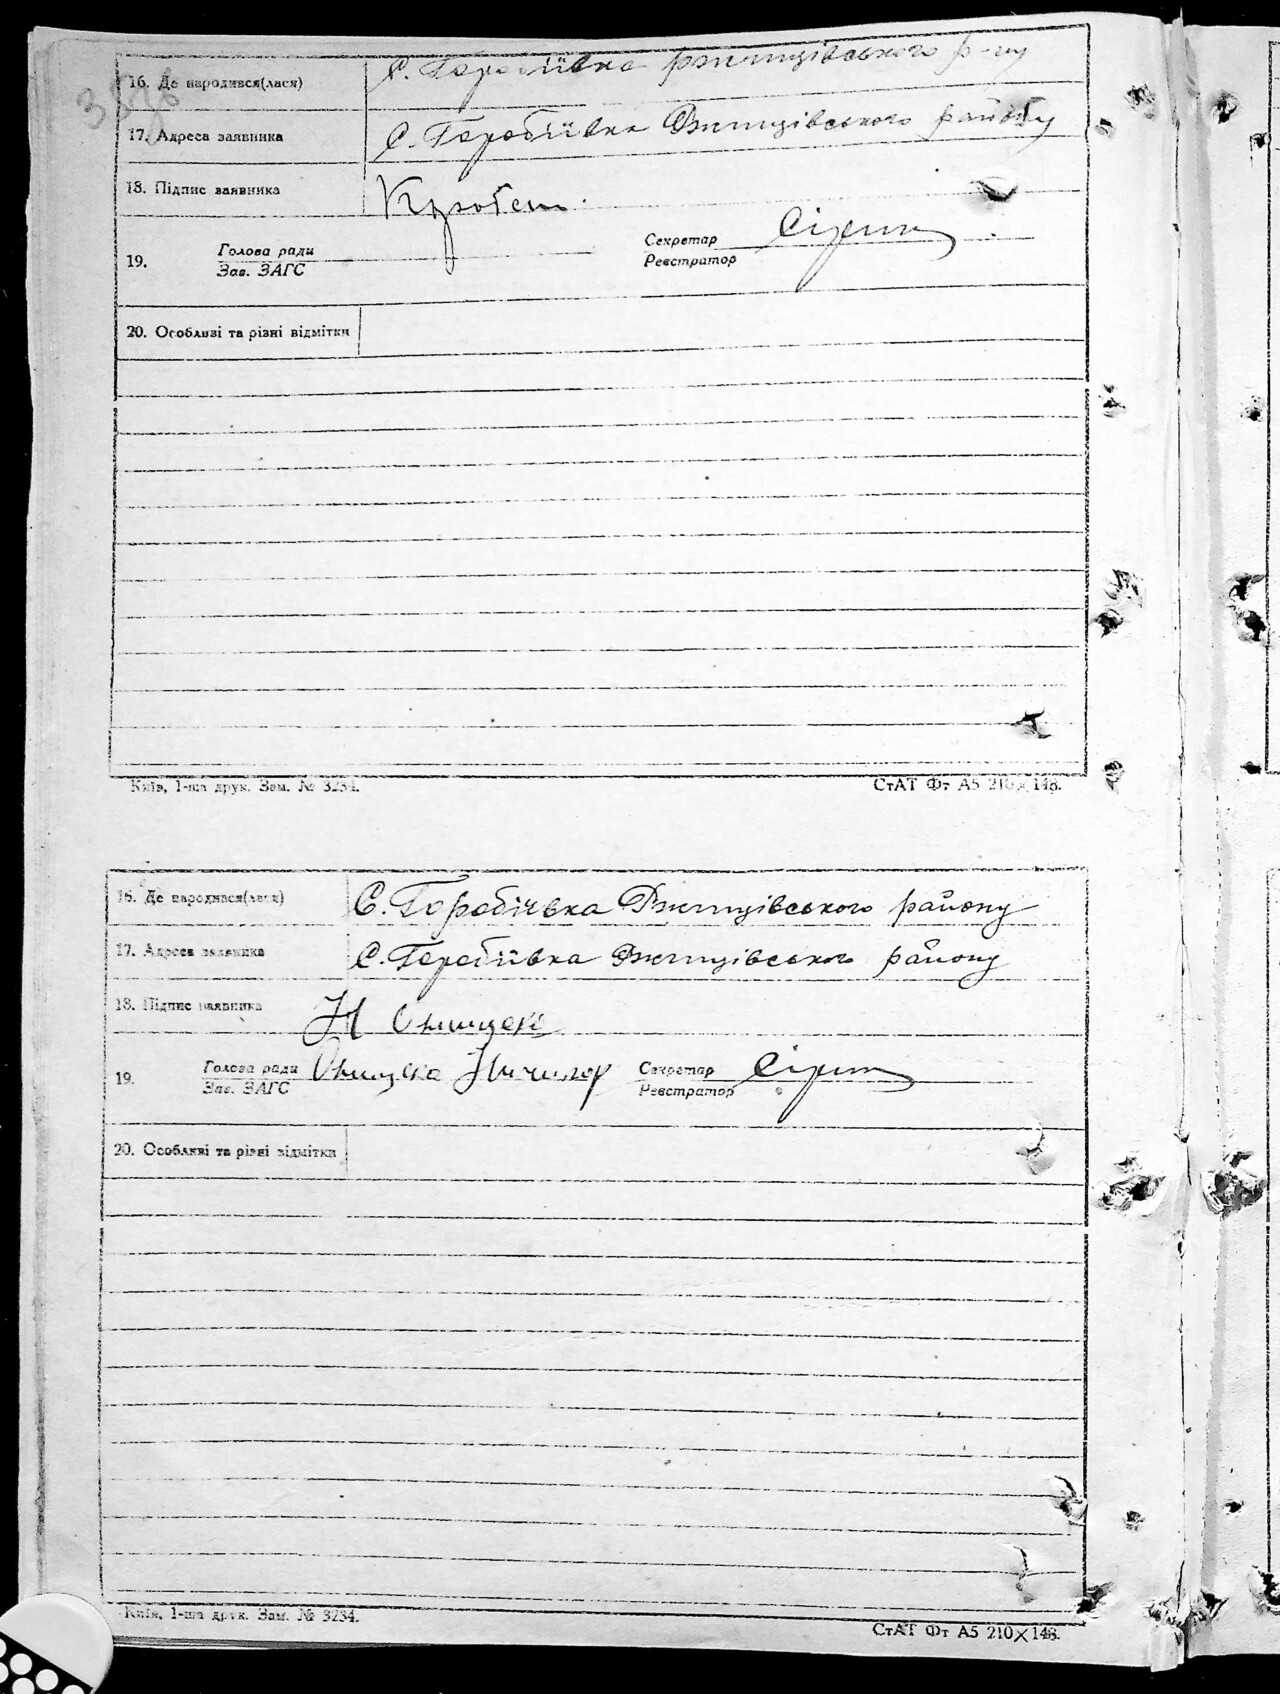 16. Де народився(лася) С. Горобіївка Ржищівського р-ну
17. Адреса заявника С. Горобіївка Ржищівського району
18. Підпис заявника
19. Голова ради Секретар
Зав. ЗАГС Реєстратор
20. Особливі та різні відмітки
Київ, 1-ша друк. Зам. № 3234. СтАТ Фт А5 210×148.
16. Де народився(лася) С. Горобіївка Ржищівського району
17. Адреса заявника С. Горобіївка Ржищівського району
18. Підпис заявника Н
19. Голова ради Секретар
Зав. ЗАГС Реєстратор
20. Особливі та різні відмітки
Київ, 1-ша друк. Зам. № 3234.
СтАТ Фт А5 210×148.